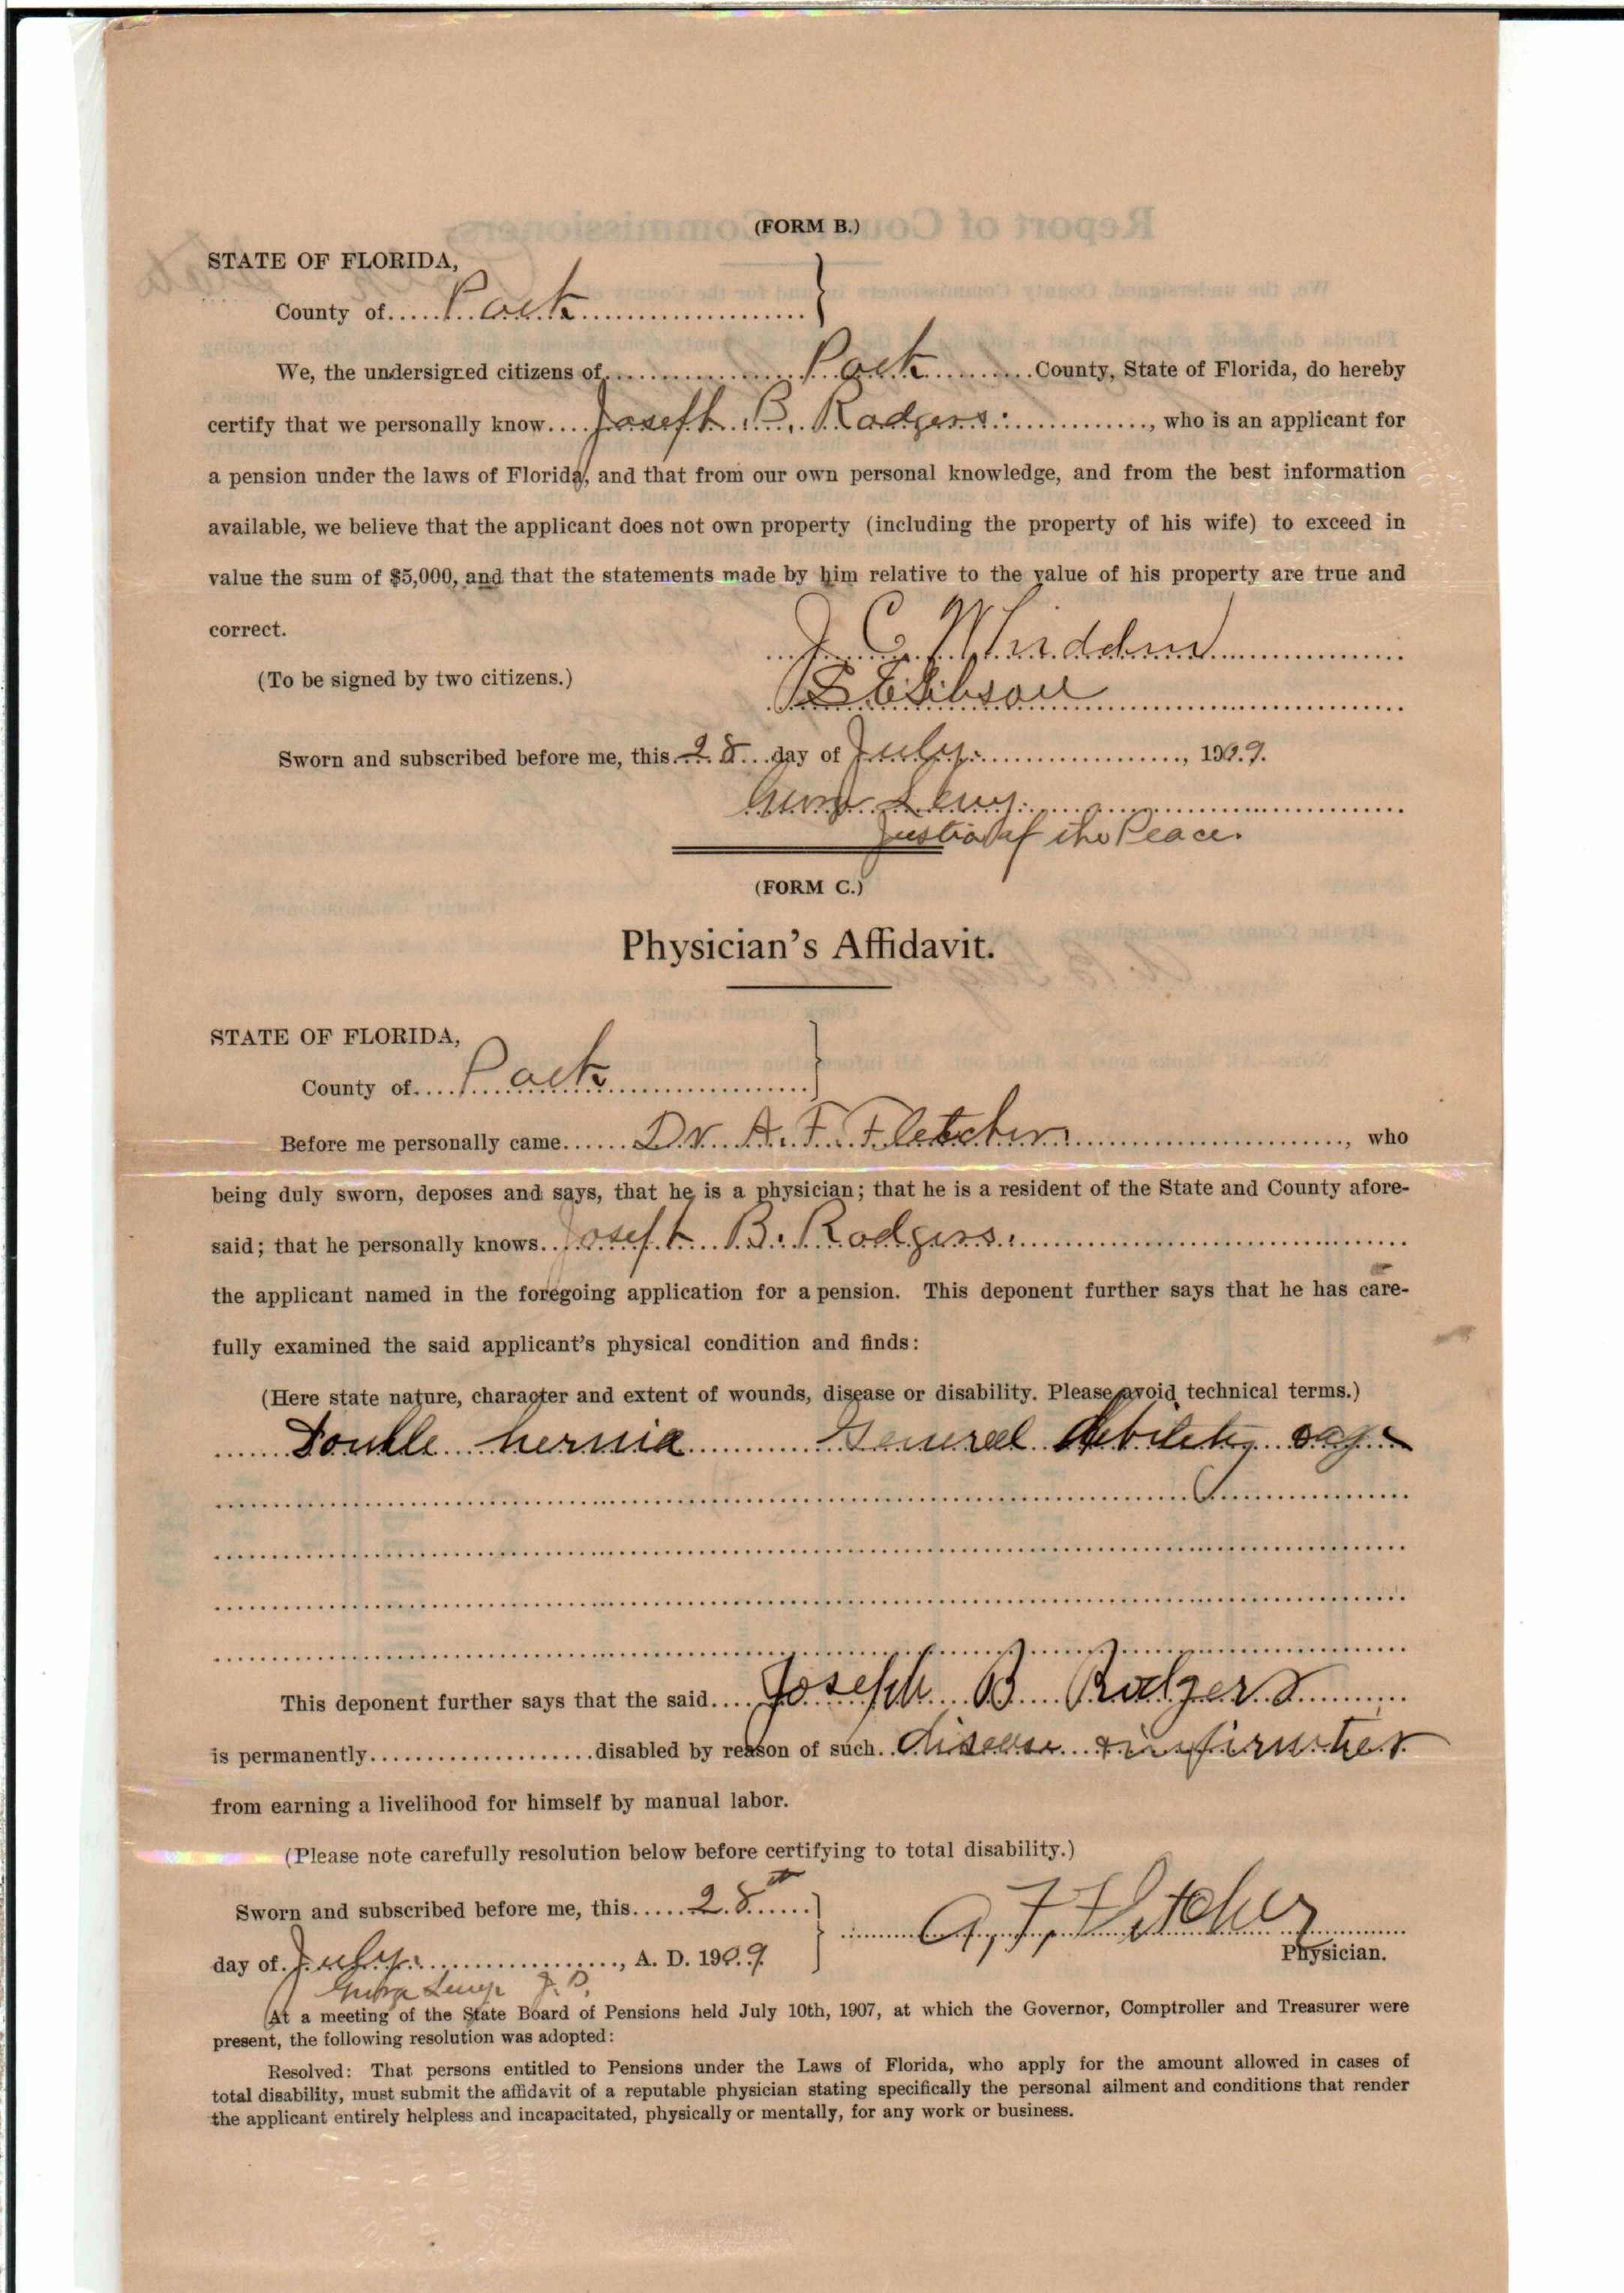 (FORM B.)
STATE OF FLORIDA,
County of Polk
We, the undersigned citizens of Polk County, State of Florida, do hereby
certify that we personally know Joseph B. Rodgers, who is an applicant for
a pension under the laws of Florida, and that from our own personal knowledge, and from the best information
available, we believe that the applicant does not own property (including the property of his wife) to exceed in
value the sum of $5,000, and that the statements made by him relative to the value of his property are true and
correct.
J C Whidden
(To be signed by two citizens.)
Gibson
Sworn and subscribed before me, this 28 day of July, 1909.
Justice of the Peace.
(FORM C.)
Physician's Affidavit.
STATE OF FLORIDA,
County of Polk
Before me personally came Dr. A. F. Fletcher, who
being duly sworn, deposes and says, that he is a physician; that he is a resident of the State and County afore-
said; that he personally knows Joseph B. Rodgers.
the applicant named in the foregoing application for a pension. This deponent further says that he has care-
fully examined the said applicant's physical condition and finds:
(Here state nature, character and extent of wounds, disease or disability. Please avoid technical terms.)
Double hernia General debility age
This deponent further says that the said Joseph B Rodgers
is permanently disabled by reason of such disease & infirmities
from earning a livelihood for himself by manual labor.
(Please note carefully resolution below before certifying to total disability.)
Sworn and subscribed before me, this 28th
A. F. Fletcher
Physician.
day of July, A. D. 1909
J. P.
At a meeting of the State Board of Pensions held July 10th, 1907, at which the Governor, Comptroller and Treasurer were
present, the following resolution was adopted:
Resolved: That persons entitled to Pensions under the Laws of Florida, who apply for the amount allowed in cases of
total disability, must submit the affidavit of a reputable physician stating specifically the personal ailment and conditions that render
the applicant entirely helpless and incapacitated, physically or mentally, for any work or business.